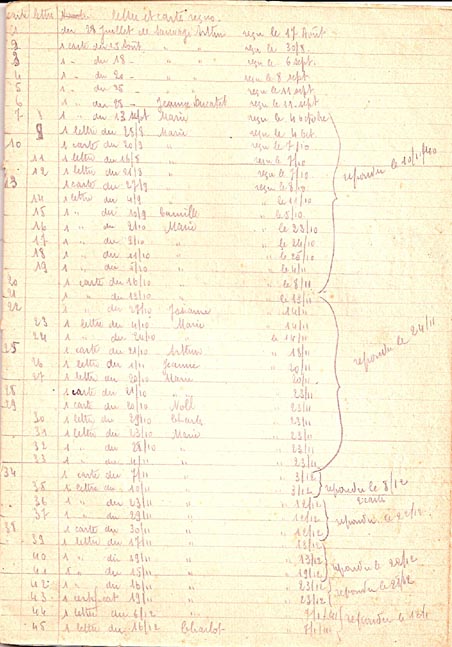 carte lettre lettre et carte reçu
1 du 28 juillet de Sauvage Arthur reçu le 17 Août
2 1 carte du 25 Août " " reçu le 30/8
3 1 " du 18 " " reçu le 6 sept
4 1 " du 20 " " reçu le 8 sept
5 1 " du 25 " " reçu le 11 sept
6 1 " du 28 Jeanne reçu le 11 sept
7 1 " du 13 sept Marie reçu le 4 octobre
8 1 lettre du 25/8 Marie reçu le 4 oct
10 1 carte du 20/9 " reçu le 7/10
11 1 lettre du 16/8 " reçu le 7/10
12 1 lettre du 21/8 " reçu le 7/10
13 1 carte du 27/9 " reçu le 8/10
14 1 lettre du 4/9 " " le 11/10
15 1 " du 10/9 Camille " le 5/10
16 1 " du 2/10 Marie " le 23/10
17 1 " du 3/10 " " le 24/10
18 1 " du 11/10 " " le 25/10
19 1 " du 5/10 " " le 4/11
20 1 carte du 16/10 " " le 8/11
21 1 " du 13/10 " " le 13/11
22 1 " du 27/10 Johanne " 14/11
23 1 lettre du 4/10 Marie " 14/11
24 1 " du 24/10 " " le 15/11
25 1 carte du 21/10 Arthur " 18/11
26 1 lettre du 1/11 Jeanne " 20/11
27 1 lettre du 20/10 Marie 20/11
28 1 carte du 21/10 " 23/11
29 1 carte du 20/10 Noël 23/11
30 1 lettre du 29/10 Charles " 23/11
31 1 lettre du 23/10 Marie " 23/11
32 1 " du 28/10 " " 23/11
33 1 " du 4/11 " " 23/11
repondu le 24/11
34 1 carte du 7/11 " " 3/12
35 1 lettre du 10/11 " " 3/12 repondu le 8/12
1 carte
36 1 " du 23/11 " " 12/12
37 1 " du 29/11 " " 12/12 repondu le 22/12
38 1 carte du 30/11 " " 12/12
39 1 lettre du 17/11 " " 13/12
40 1 " du 19/11 " " 13/12
41 1 " du 15/11 " " 19/12 repondu le 26/12
42 1 " du 16/11 " " 23/12
43 1 19/11 " " 23/12
44 1 lettre du 6/12 " repondu le
45 1 lettre du 16/12 Charlot "